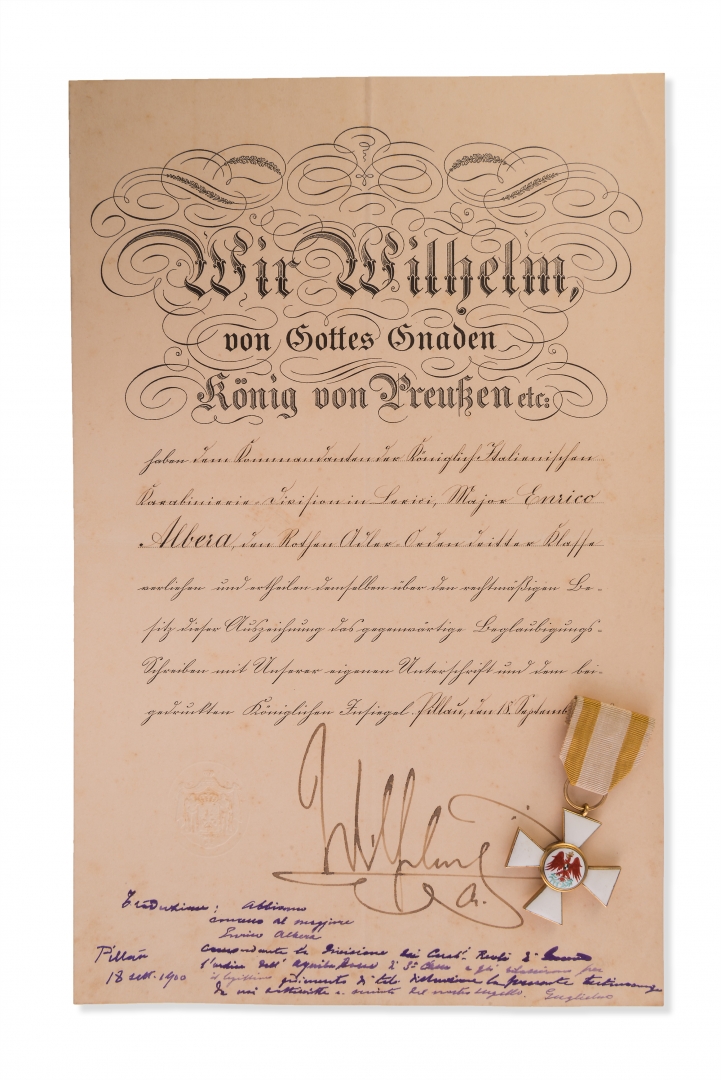 Wir Wilhelm,
von Gottes Gnaden
König von Preußen etc:
haben dem Kommandanten der Königlich Italienischen
Karabinierie-Division in Lerici, Major Enrico
Albera, den Rothen Adler-Orden dritter Klasse
verliehen und ertheilen demselben über den rechtmäßigen Be-
sitz dieser Auszeichnung das gegenwärtige Beglaubigungs-
Schreiben mit Unserer eigenen Unterschrift und dem bei-
gedruckten Königlichen Insiegel. Pillau, den 18. Septemb
Wilhelm
Traduzione: Abbiamo
concesso al maggiore
Enrico Albera
comandante la Divisione dei Carab. Reali di
l'ordine dell'Aquila Rossa di 3ª Classe e per
il legittimo godimento di tale distinzione la presente
da noi sottoscritta e munita del nostro sigillo. Guglielmo
Pillau
18 sett. 1900